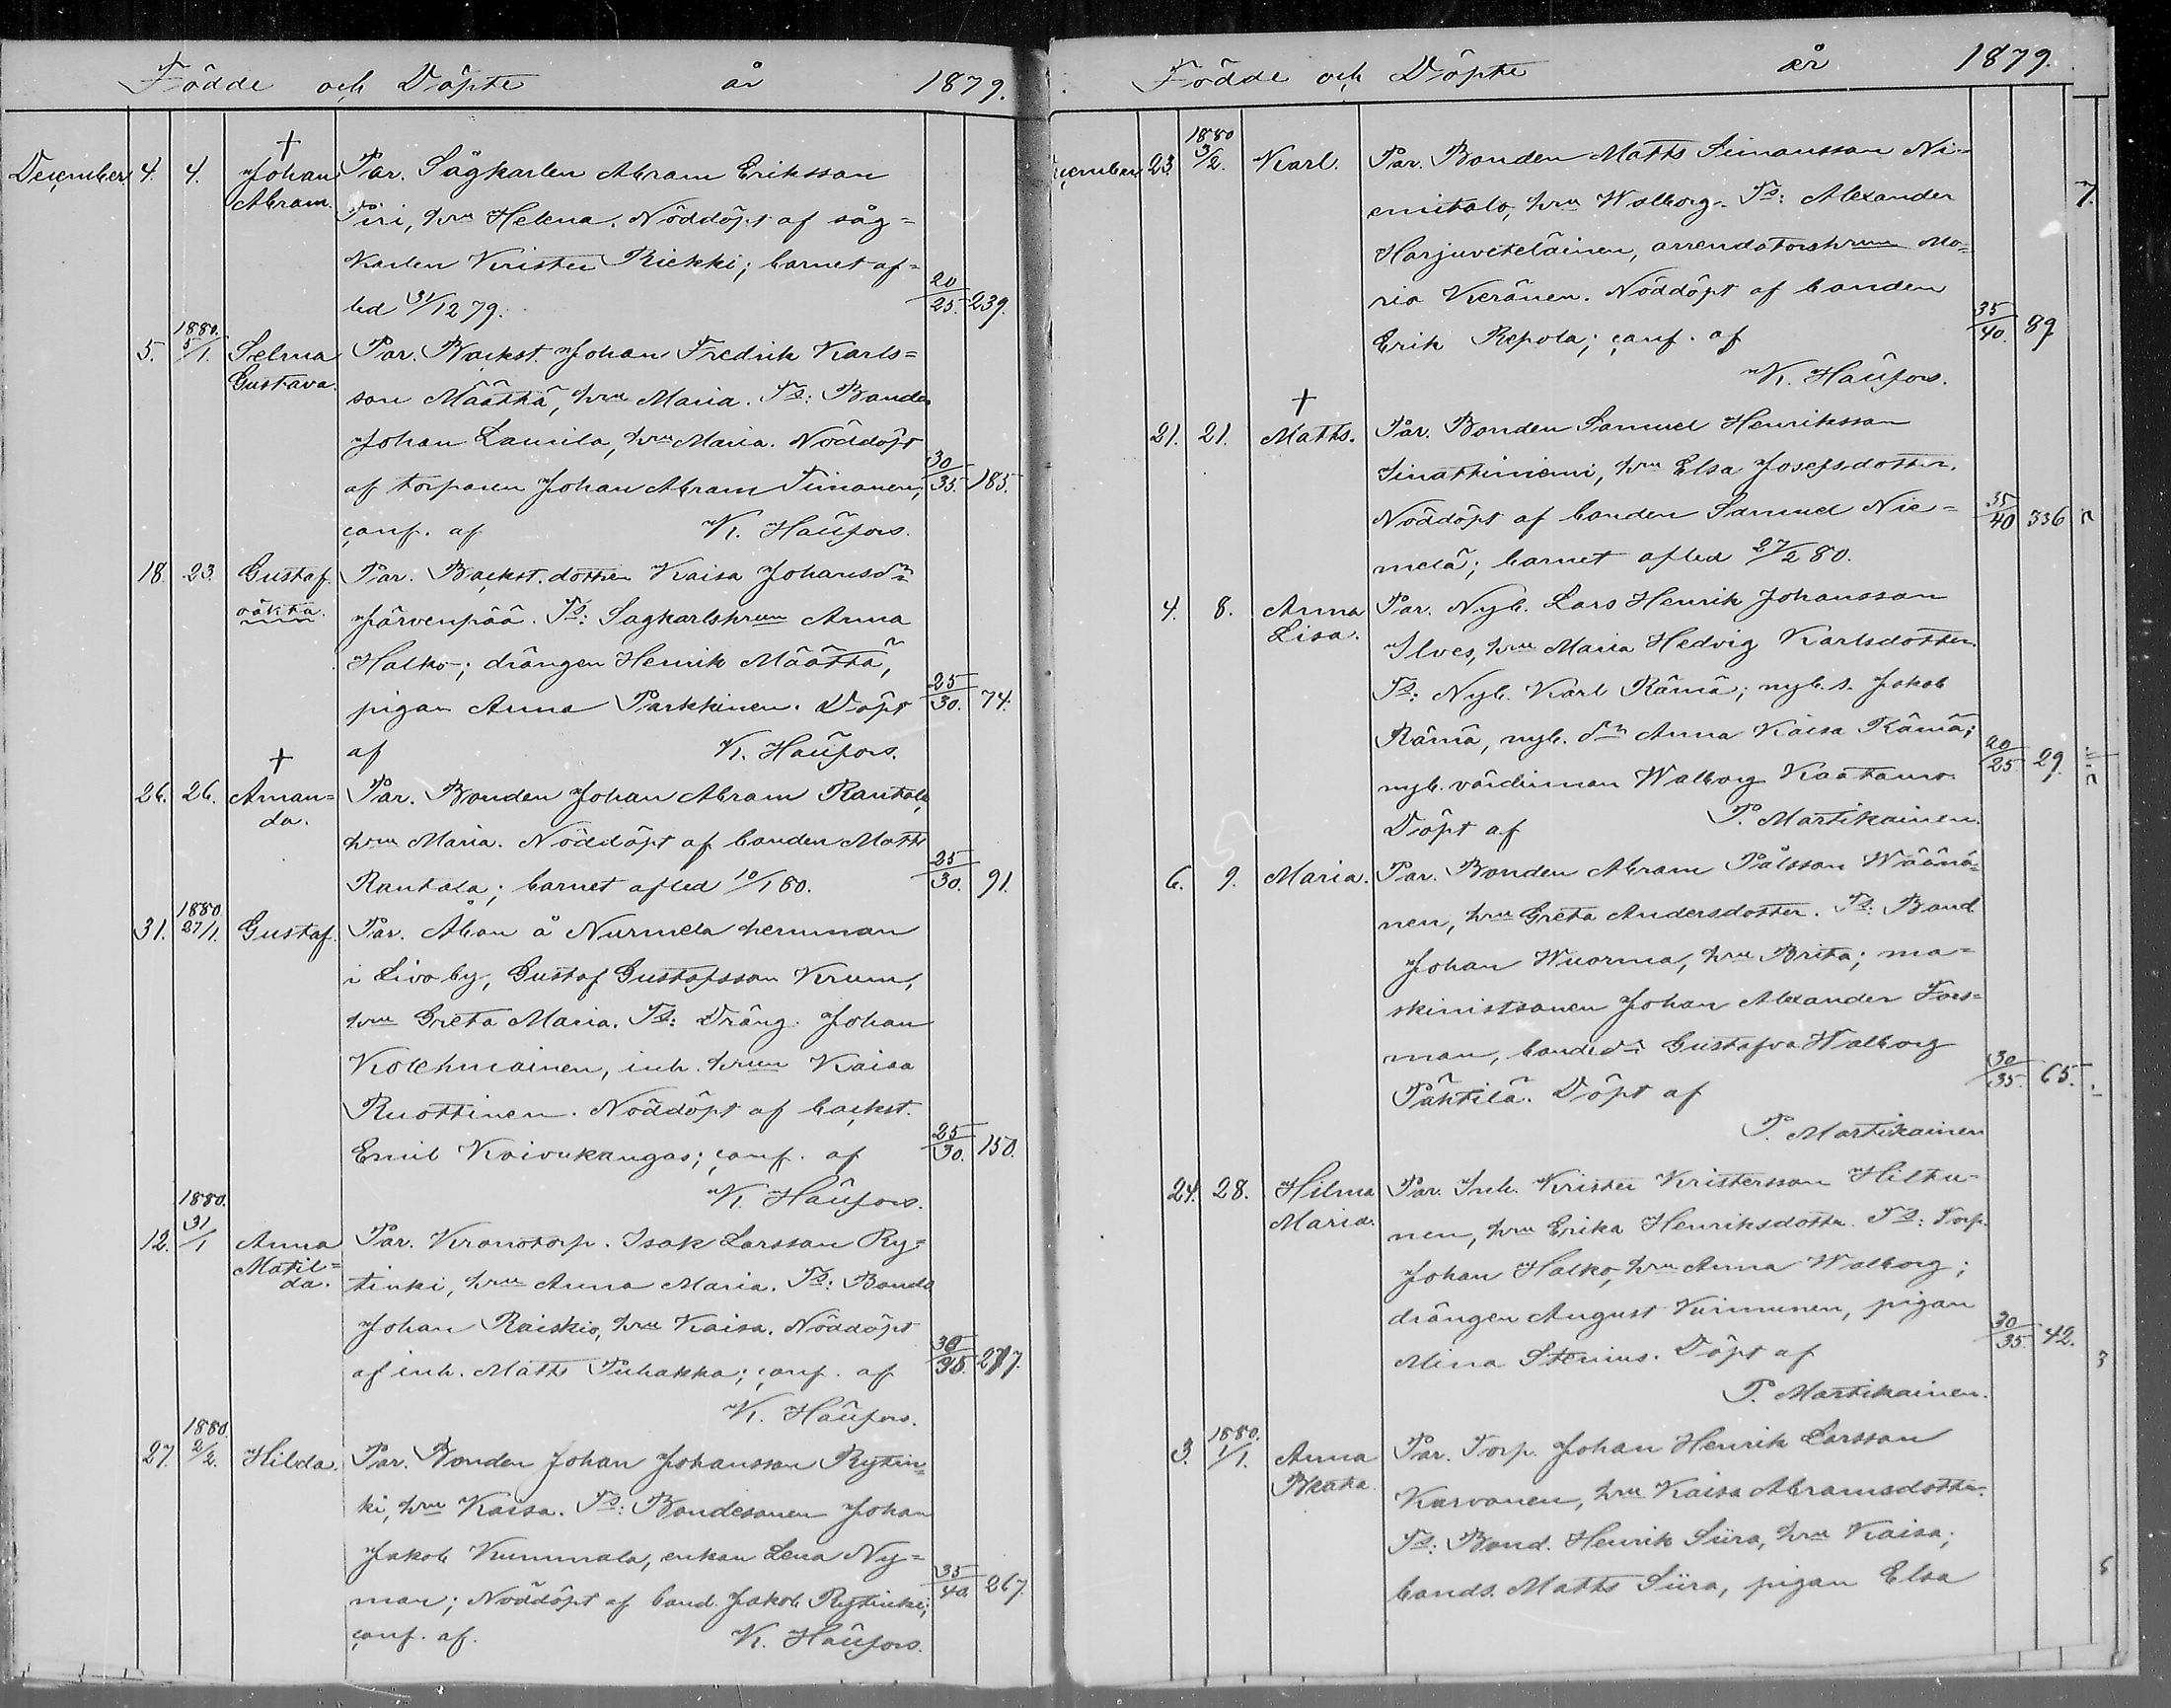 Födde och Döpte år 1879.
December 4. 4. † Johan Abram. Par. Sågkarlen Abram Eriksson
Piri, hru Helena. Nöddöpt af såg=
karlen Krister Riekki; barnet af=
led 31/12 79. 20/25. 239.
5. 1880. 5/1. Selma Gustava. Par. Backst. Johan Fredrik Karls=
son Määttä, hru Maria. Ts: Bonden
Johan Laurila, hru Maria. Nöddöpt
af torparen Johan Abram Timonen, 30/35. 185.
conf. af K. Häufors.
18. 23. Gustaf. oäkta. Par. Backst. dotter Kaisa Johansdr
Järvenpää. Ts: Sagkarlshrun Anna
Halko; drängen Henrik Määttä,
pigan Anna Parkkinen. Döpt 25/30. 74.
af K. Häufors.
26. 26. † Aman=
da. Par. Bonden Johan Abram Rantala,
hru Maria. Nöddöpt af bonden Matts
Rantala; barnet afled 10/1 80. 25/30. 91.
31. 1880. 27/1. Gustaf. Par. Åbon å Nurmela hemman
i Livo by, Gustaf Gustafsson Krum,
hru Greta Maria. Ts: Dräng. Johan
Kolehmainen, inh. hrun Kaisa
Ruottinen. Nöddöpt af backst.
Emil Koivukangas; conf. af 25/30. 150.
K. Häufors.
12. 1880. 31/1 Anna Matil=
da. Par. Kronotorp. Isak Larsson Ry=
tinki, hru Anna Maria. Ts: Bond
Johan Raiskio, hru Kaisa. Nöddöpt
af inh. Matts Puhakka; conf. af 30/35. 277.
K. Häufors.
27. 1880. 2/2. Hilda. Par. Bonden Johan Johansson Rytin=
ki, hru Kaisa. Ts: Bondesonen Johan
Jakob Kummala, enkan Lena Ny=
man; Nöddöpt af bond. Jakob Rytinki; 35/40. 267.
conf. af. K. Häufors.
Födde och Döpte år 1879.
December 23. 1880 3/2. Karl. Par. Bonden Matts Simonsson Ni=
emitalo, hru Walborg. Ts: Alexander
Harjuviteläinen, arrendatorshrun Ma=
ria Keränen. Nöddöpt af bonden
Erik Repola; conf. af 35/40. 89
K. Häufors.
7.
21. 21. † Matts. Par. Bonden Samuel Henriksson
Sinattiniemi, hru Elsa Josefsdotter.
Nöddöpt af bonden Samuel Nie= 35/40 336
melä; barnet afled 27/2 80.
4. 8. Anna Lisa. Par. Nyb. Lars Henrik Johansson
Ilves, hru Maria Hedvig Karlsdotter.
Ts: Nyb. Karl Rämä; nyb. s. Jakob
Rämä, nyb. dr Anna Kaisa Rämä; 20/25. 29.
nyb. värdinnan Walborg Kaatamo.
Döpt af P. Martikainen.
6. 9. Maria. Par. Bonden Abram Pålsson Wäänä=
nen, hru Greta Andersdotter. Ts: Bond
Johan Wuorma, hru Brita; ma=
skinistsonen Johan Alexander Fors=
man, bondedr Gustafva Walborg 30/35. 65.
Pähtilä. Döpt af
P. Martikainen
24. 28. Hilma Maria. Par. Inh. Krister Kristersson Hiltu=
nen, hru Erika Henriksdotter. Ts: Torp.
Johan Halko, hru Anna Walborg;
drängen August Kurimunen, pigan 30/35. 42.
Mina Stenius. Döpt af
P. Martikainen.
3. 1880. 1/1. Anna Beata. Par. Torp. Johan Henrik Larsson
Karvonen, hru Kaisa Abramsdotter.
Ts: Bond. Henrik Siira, hru Kaisa;
bonds. Matts Siira, pigan Elsa